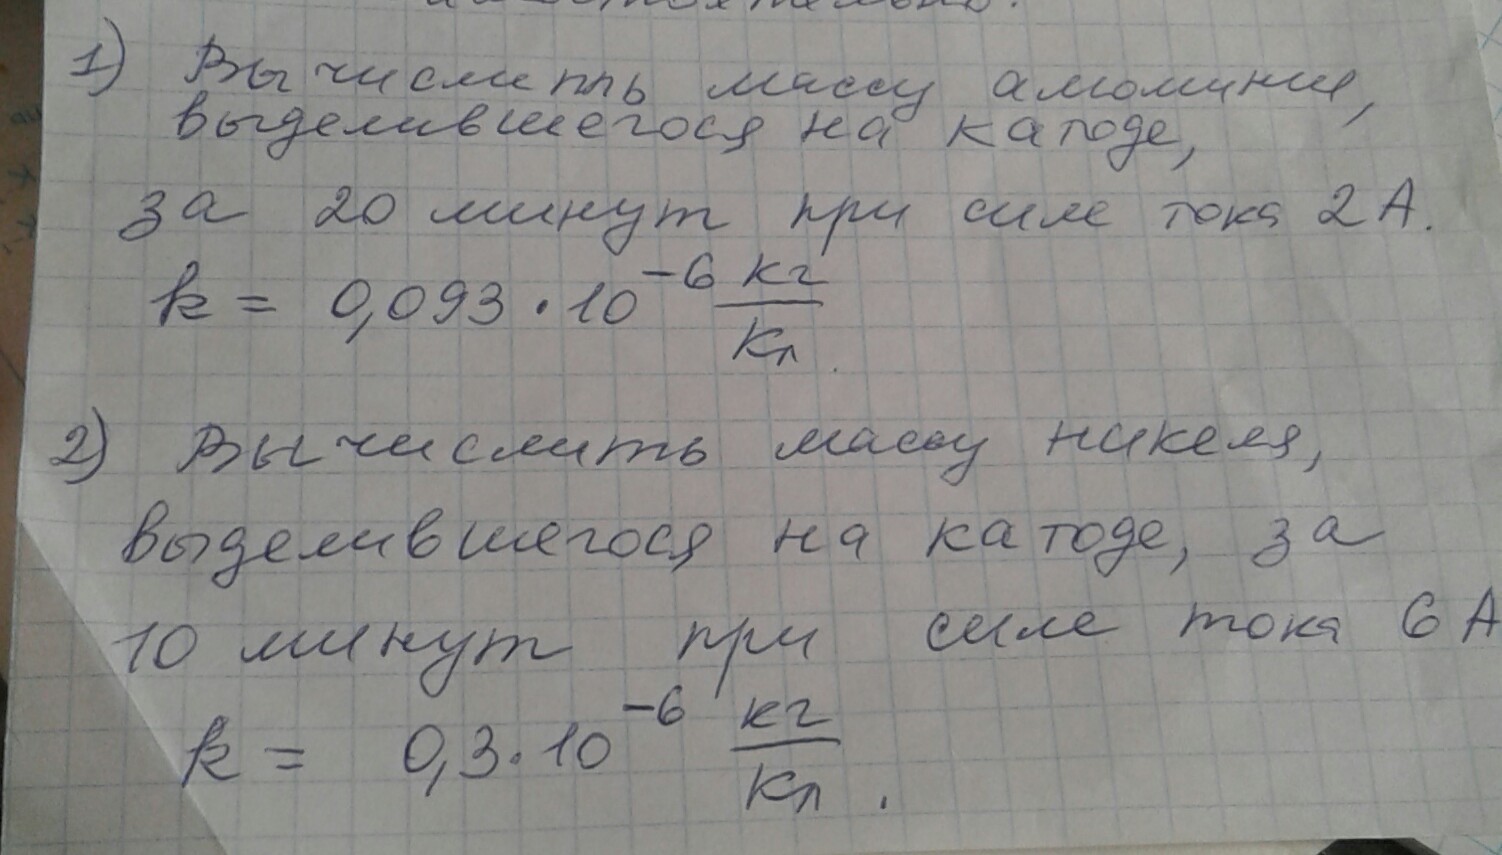 1) Вычислить массу алюминия,
выделившегося на катоде,
за 20 минут при силе тока 2 А.
k = 0,093 · 10⁻⁶ кг/Кл.
2) Вычислить массу никеля,
выделившегося на катоде, за
10 минут при силе тока 6 А
k = 0,3 · 10⁻⁶ кг/Кл.